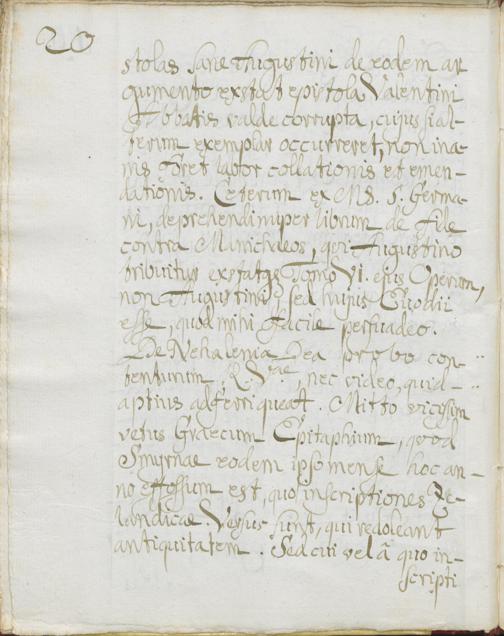 20
stolas sane Augustini de eodem ar
gumento exstat epistola Valentini
Abbatis valde corrupta, cujus si al-
terum exemplar occurreret, non ina-
nis foret labor collationis et emen-
dationis. Ceterum ex MS. S. Germa-
ni, deprehendi nuper librum de fide
contra Manichaeos, qui Augustino
tribuitur exstatqe Tomo VI. ejus Operum,
non Augustini, sed hujus Evodii
esse, quod mihi facile persuadeo.
De Nehalenia Dea probo con-
tenturum R. Vrae, nec video, quid
aptius adferri queat. Mitto vicissim
vetus Graecum Epitaphium, quod
Smyrnae eodem ipso mense hoc an-
no effossum est, quo inscriptiones Ze-
landicae. Versus sunt, qui redoleant
antiquitatem. Sed cui vel à quo in-
scripti